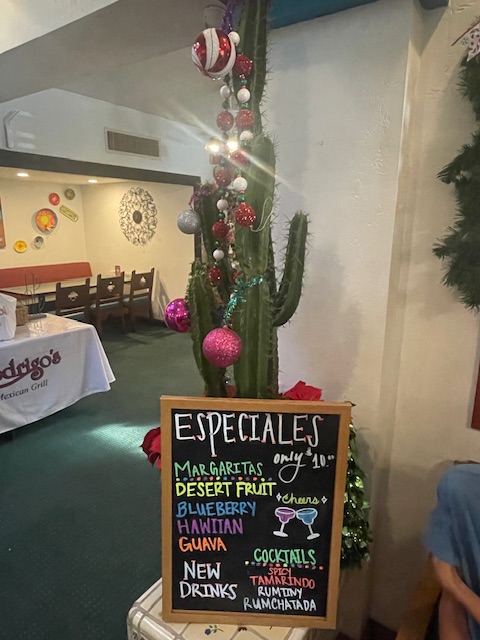 odrigo's
Mexican Grill
ESPECIALES
only $10.00
MARGARITAS
DESERT FRUIT
BLUEBERRY
HAWIIAN
GUAVA
Cheers
NEW
DRINKS
COCKTAILS
SPICY
TAMARINDO
RUMTINY
RUMCHATADA